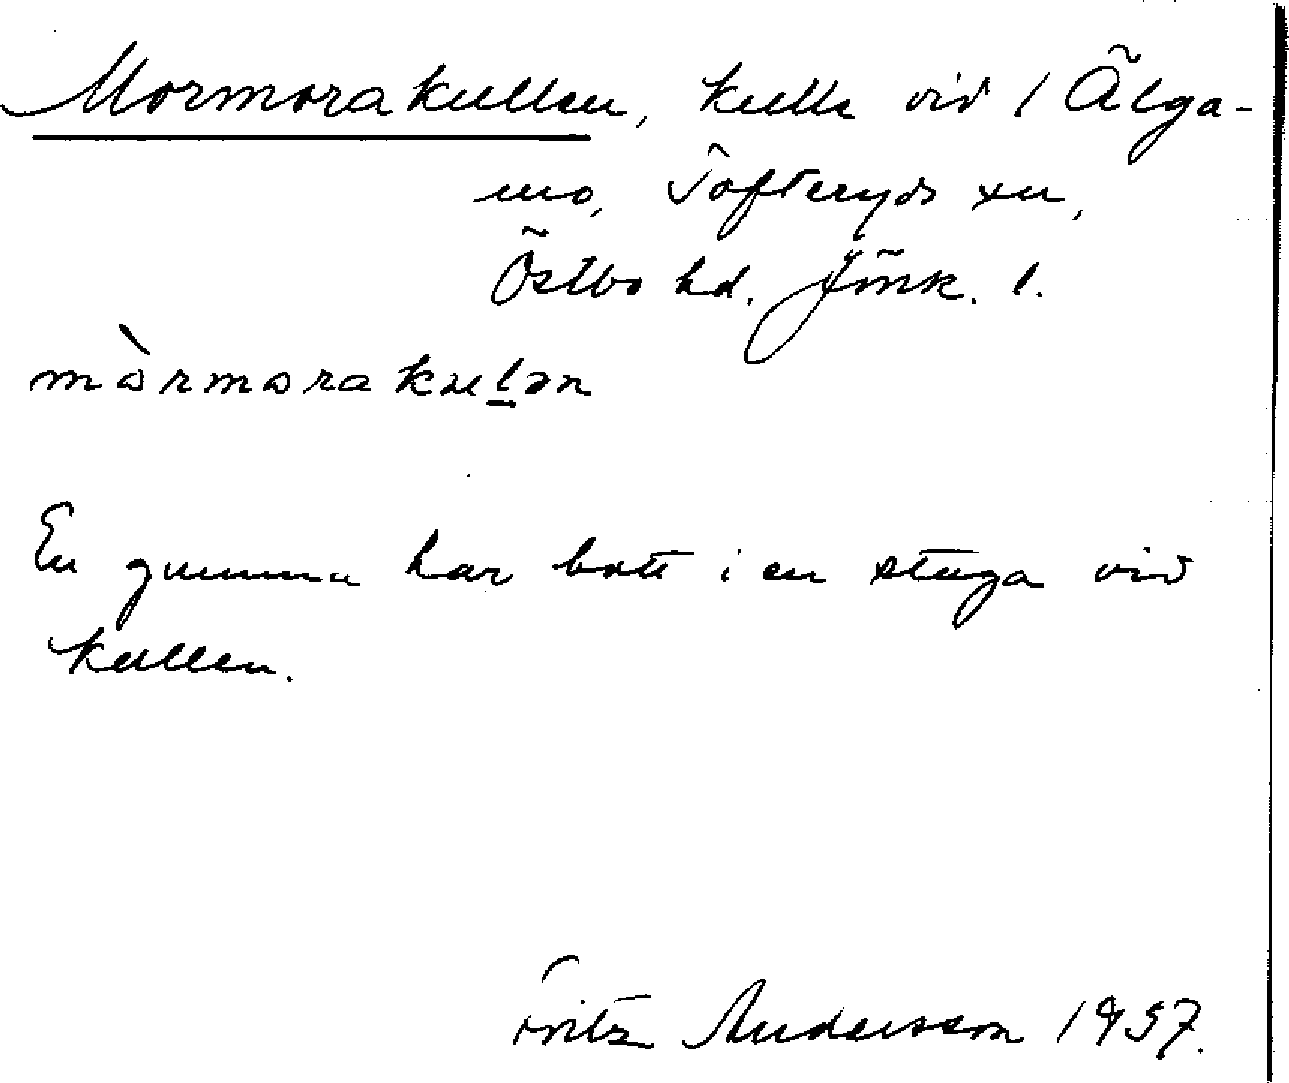 Mormorakullen, kulle vid / Älga-
mo, Tofteryds sn,
Östbo hd. Jönk. l.
mòrmorakulən
En gumma har bott i en stuga vid
kullen.
Fritz Andersson 1937.